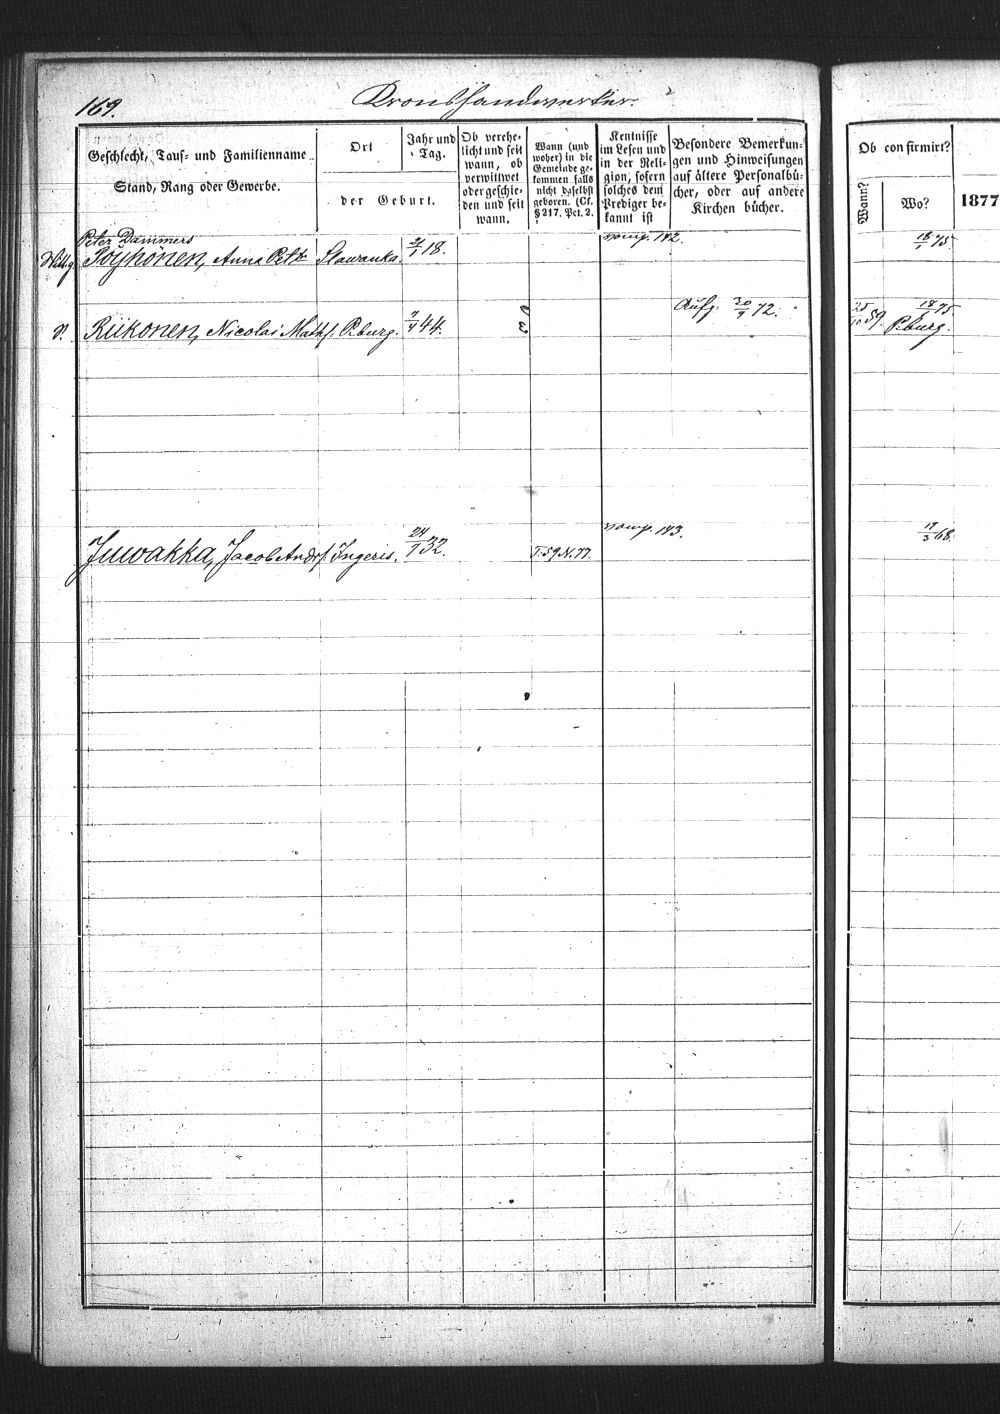 169.
Kronshandwerker.
Geschlecht, Tauf- und Familienname
Stand, Rang oder Gewerbe.
Ort
Jahr und
Tag.
der Geburt.
Ob verehe-
licht und seit
wann, ob
verwittwet
oder geschie-
den und seit
wann.
Wann (und
woher) in die
Gemeinde ge-
kommen falls
nicht daselbst
geboren. (Cf.
§ 217. Pct. 2.
Kentnisse
im Lesen und
in der Reli-
gion, sofern
solches dem
Prediger be-
kannt ist
Besondere Bemerkun-
gen und Hinweisungen
auf ältere Personalbü-
cher, oder auf andere
Kirchen bücher.
Ob confirmirt?
Wann?
Wo?
1877
Peter Dammers
Pöyhönen, Anna Petr. Slawanka. 2/1 18. 142. 18/1 75
Riikonen, Nicolai Math f. P.burg. 7/9 44. Aufg. 30/9 72. 25/10 59. P.burg. 18/1 75
Juwakka, Jacob Andr f. Ingeris. 24/1 32. T. 59. N. 77. 143. 17/3 68.